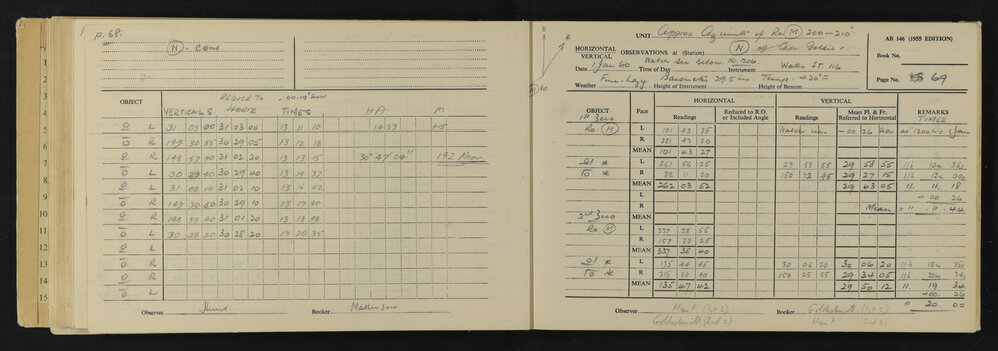 p. 68.
(N). cont.
REDUCE TO -00.19" 50W
OBJECT VERTICALS HORIZ TIMES HA M
O L 31 03 00 31 03 00 13 11 10 1433 415
O R 149 30 55 30 29 05 13 12 18
O R 148 57 40 31 02 20 13 13 15 30° 47' 04" 142 Mean
O L 30 29 40 30 29 40 13 14 37
O L 31 02 10 31 02 10 13 16 02
O R 149 30 50 30 29 10 13 17 40
O R 148 58 40 31 01 20 13 18 48
O L 30 28 20 30 28 20 13 20 35
O L
O R
O R
O L
Observer Hunt Booker
UNIT Approx Azimuth of Ro (M) 200-210°
AB 146 (1955 EDITION)
HORIZONTAL
VERTICAL
OBSERVATIONS at (Station) (N) of Cape
Book No.
Date 1 Jan 60 Time of Day Watch see below. No. 206. Instrument Watts ST. 116
Page No. 69
Weather Fine-Hazy Height of Instrument Barometer 29.5 ins. Temp. +20°F. Height of Beacon
OBJECT Face HORIZONTAL VERTICAL REMARKS
Readings Reduced to R.O. or Included Angle Readings Mean Fl. & Fr. Referred to Horizontal TIMES
1st Zero
Ro (M) L 101 43 35 Watch was -00 26 slow at 1200 hrs 1 Jan
R 281 43 20
MEAN 101 43 27
O| * L 261 56 25 29 58 55 29 58 55 11h 10m 36s
|O * R 82 11 20 150 32 45 29 27 15 11h 12m 00s
MEAN 262 03 52 29 43 05 11. 11. 18
L +00 26
R Mean = 11. 11. 44
MEAN
2nd Zero
Ro (M) L 337 38 55
R 157 38 25
MEAN 337 38 40
O| * L 135 44 45 30 06 20 30 06 20 11h 18m 35s
|O * R 315 50 40 150 25 55 29 34 05 11h 20m 34s
MEAN 135 47 42 29 50 12 11 19 34
+00. 26
" 20 00
Observer Hunt (1st Z) Booker Goldschmidt (1st Z)
Goldschmidt (2nd Z) Hunt (2nd Z)